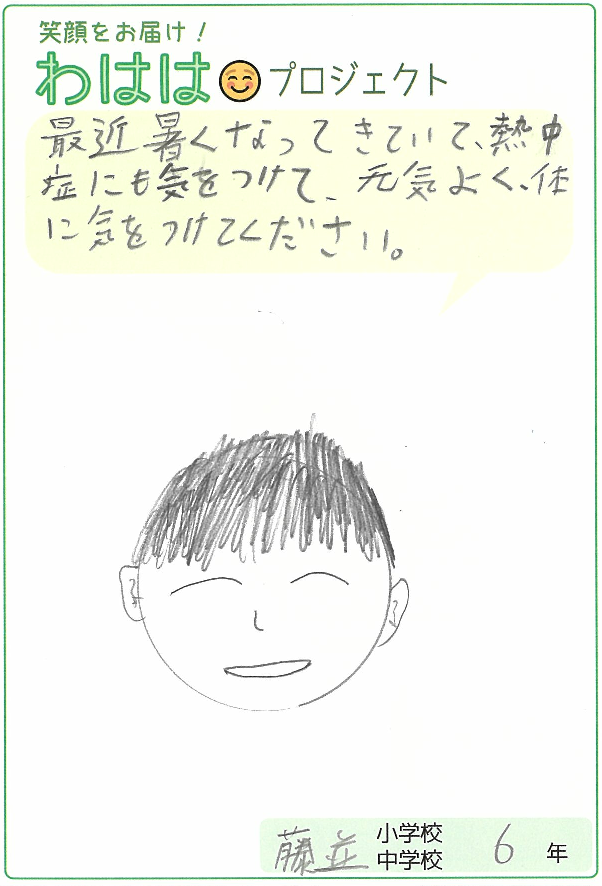 笑顔をお届け！
わはは プロジェクト
最近暑くなってきていて、熱中
症にも気をつけて、元気よく、体
に気をつけてください。
藤並 小学校 6 年
中学校